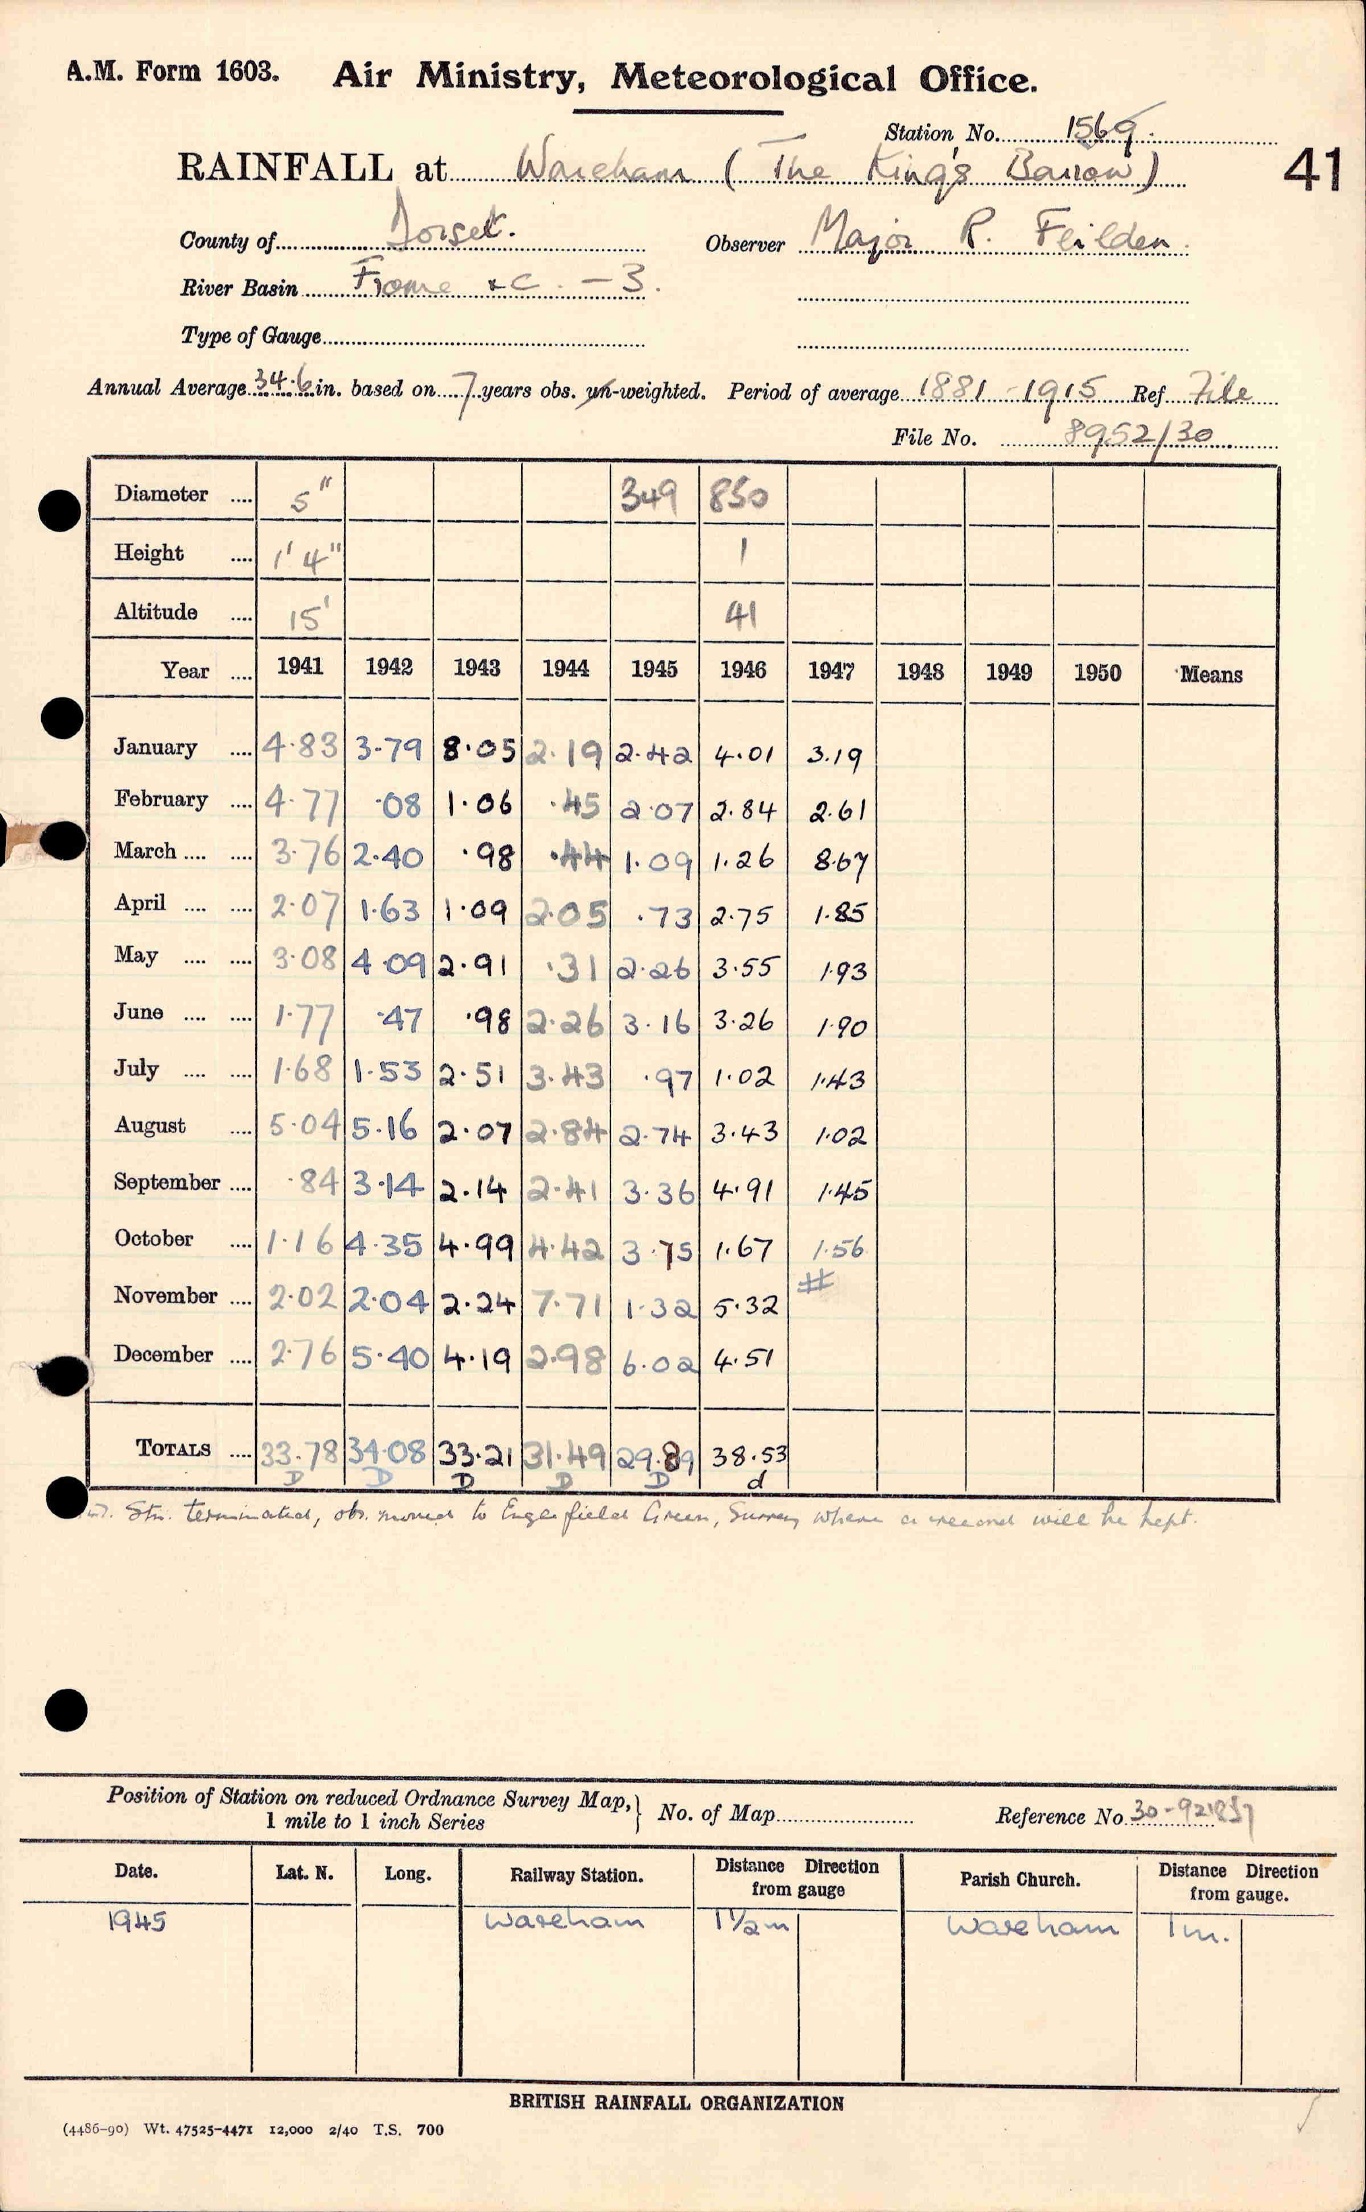 A.M. Form 1603. Air Ministry, Meteorological Office.
Station No. 1569.
41
RAINFALL at Wareham (The King's Barrow)
County of Dorset. Observer Major R. Feilden.
River Basin Frome &c. - 3.
Type of Gauge
Annual Average 34.6 in. based on 7 years obs. un-weighted. Period of average 1881-1915 Ref File
File No. 8952/30
Diameter .... 5" 349 850
Height .... 1' 4" 1
Altitude .... 15' 41
Year .... 1941 1942 1943 1944 1945 1946 1947 1948 1949 1950 Means
January .... 4.83 3.79 8.05 2.19 2.42 4.01 3.19
February .... 4.77 .08 1.06 .45 2.07 2.84 2.61
March .... .... 3.76 2.40 .98 .44 1.09 1.26 8.67
April .... .... 2.07 1.63 1.09 2.05 .73 2.75 1.85
May .... .... 3.08 4.09 2.91 .31 2.26 3.55 1.93
June .... .... 1.77 .47 .98 2.26 3.16 3.26 1.90
July .... .... 1.68 1.53 2.51 3.43 .97 1.02 1.43
August .... 5.04 5.16 2.07 2.84 2.74 3.43 1.02
September .... .84 3.14 2.14 2.41 3.36 4.91 1.45
October .... 1.16 4.35 4.99 4.42 3.75 1.67 1.56
#
November .... 2.02 2.04 2.24 7.71 1.32 5.32
December .... 2.76 5.40 4.19 2.98 6.02 4.51
TOTALS .... 33.78 34.08 33.21 31.49 29.89 38.53
D D D D D d
Stn. terminated, obs. moved to Englefield Green, Surrey where a record will be kept.
Position of Station on reduced Ordnance Survey Map,
1 mile to 1 inch Series } No. of Map Reference No. 30-921857
Date. Lat. N. Long. Railway Station. Distance Direction from gauge Parish Church. Distance Direction from gauge.
1945 Wareham 1½m Wareham 1m.
BRITISH RAINFALL ORGANIZATION
(4486-90) Wt. 47525-4471 12,000 2/40 T.S. 700